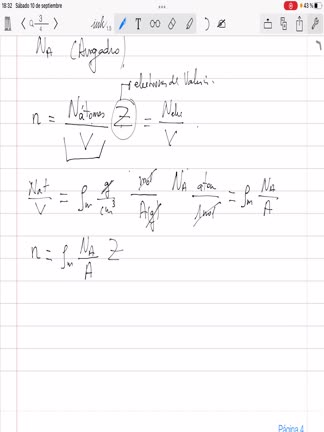 18:32 Sábado 10 de septiembre 43 %
3/4
N_A (Avogadro)
electrones de Valencia.
n = N átomos / V Z = N elec / V .
Nat / V = ρm g / cm³ mol / A(g) N_A atom / 1mol = ρm N_A / A
n = ρm N_A / A Z
Página 4